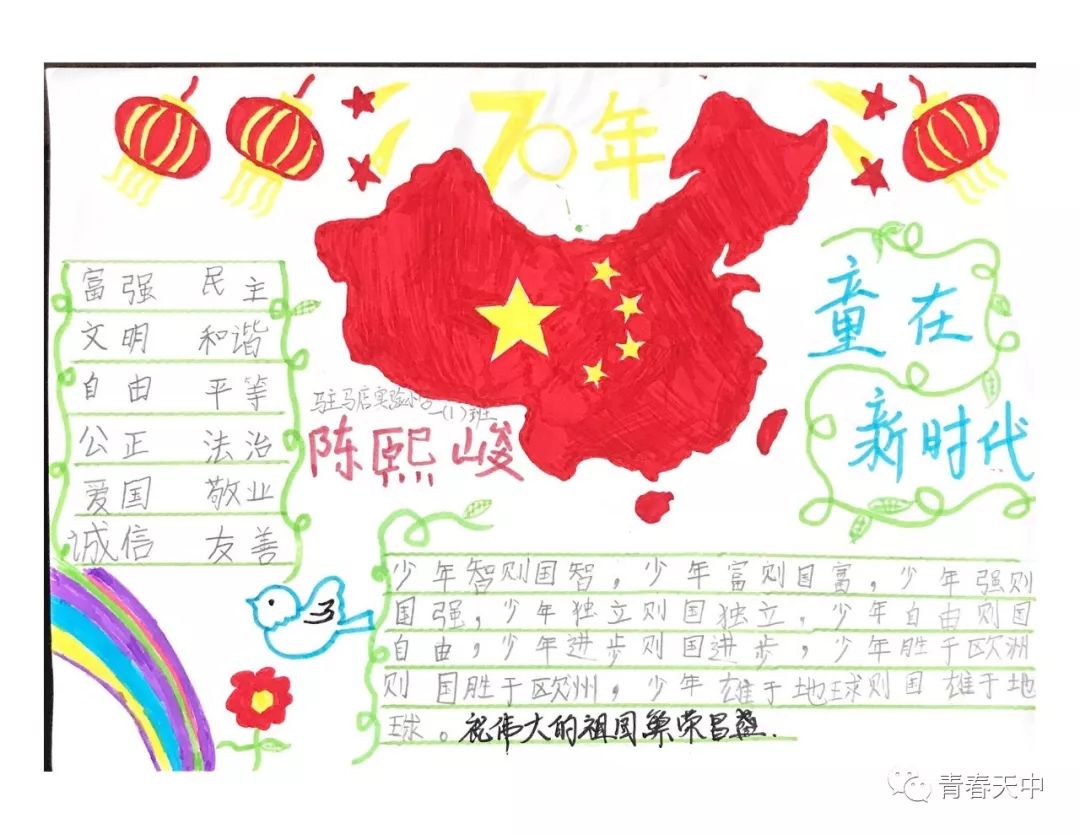 70年
富强 民主
文明 和谐
自由 平等
公正 法治
爱国 敬业
诚信 友善
驻马店实验小学一(1)班
陈熙峻
童在
新时代
少年智则国智，少年富则国富，少年强则
国强，少年独立则国独立，少年自由则国
自由，少年进步则国进步，少年胜于欧洲
则国胜于欧州，少年雄于地球则国雄于地
球。祝伟大的祖国繁荣昌盛.
青春天中